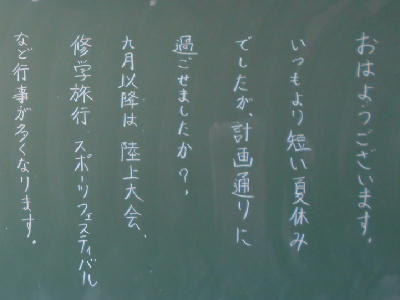 おはようございます。
いつもより短い夏休み
でしたが、計画通りに
過ごせましたか？
九月以降は、陸上大会、
修学旅行、スポーツフェスティバル
など行事が多くなります。